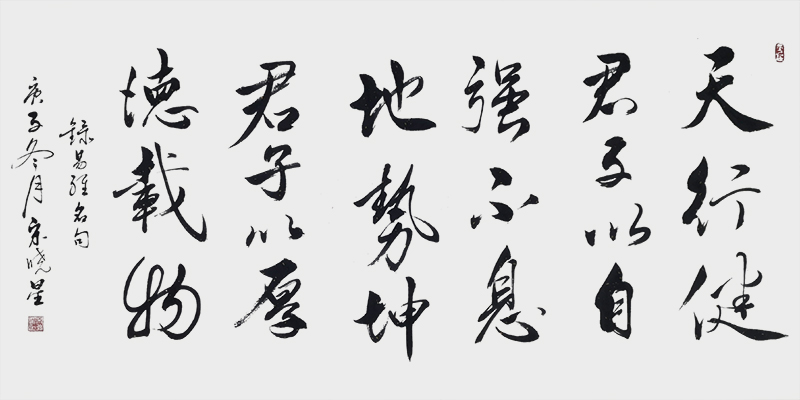 天行健
君子以自
强不息
地势坤
君子以厚
德载物
録易经名句
庚子冬月宋晓星